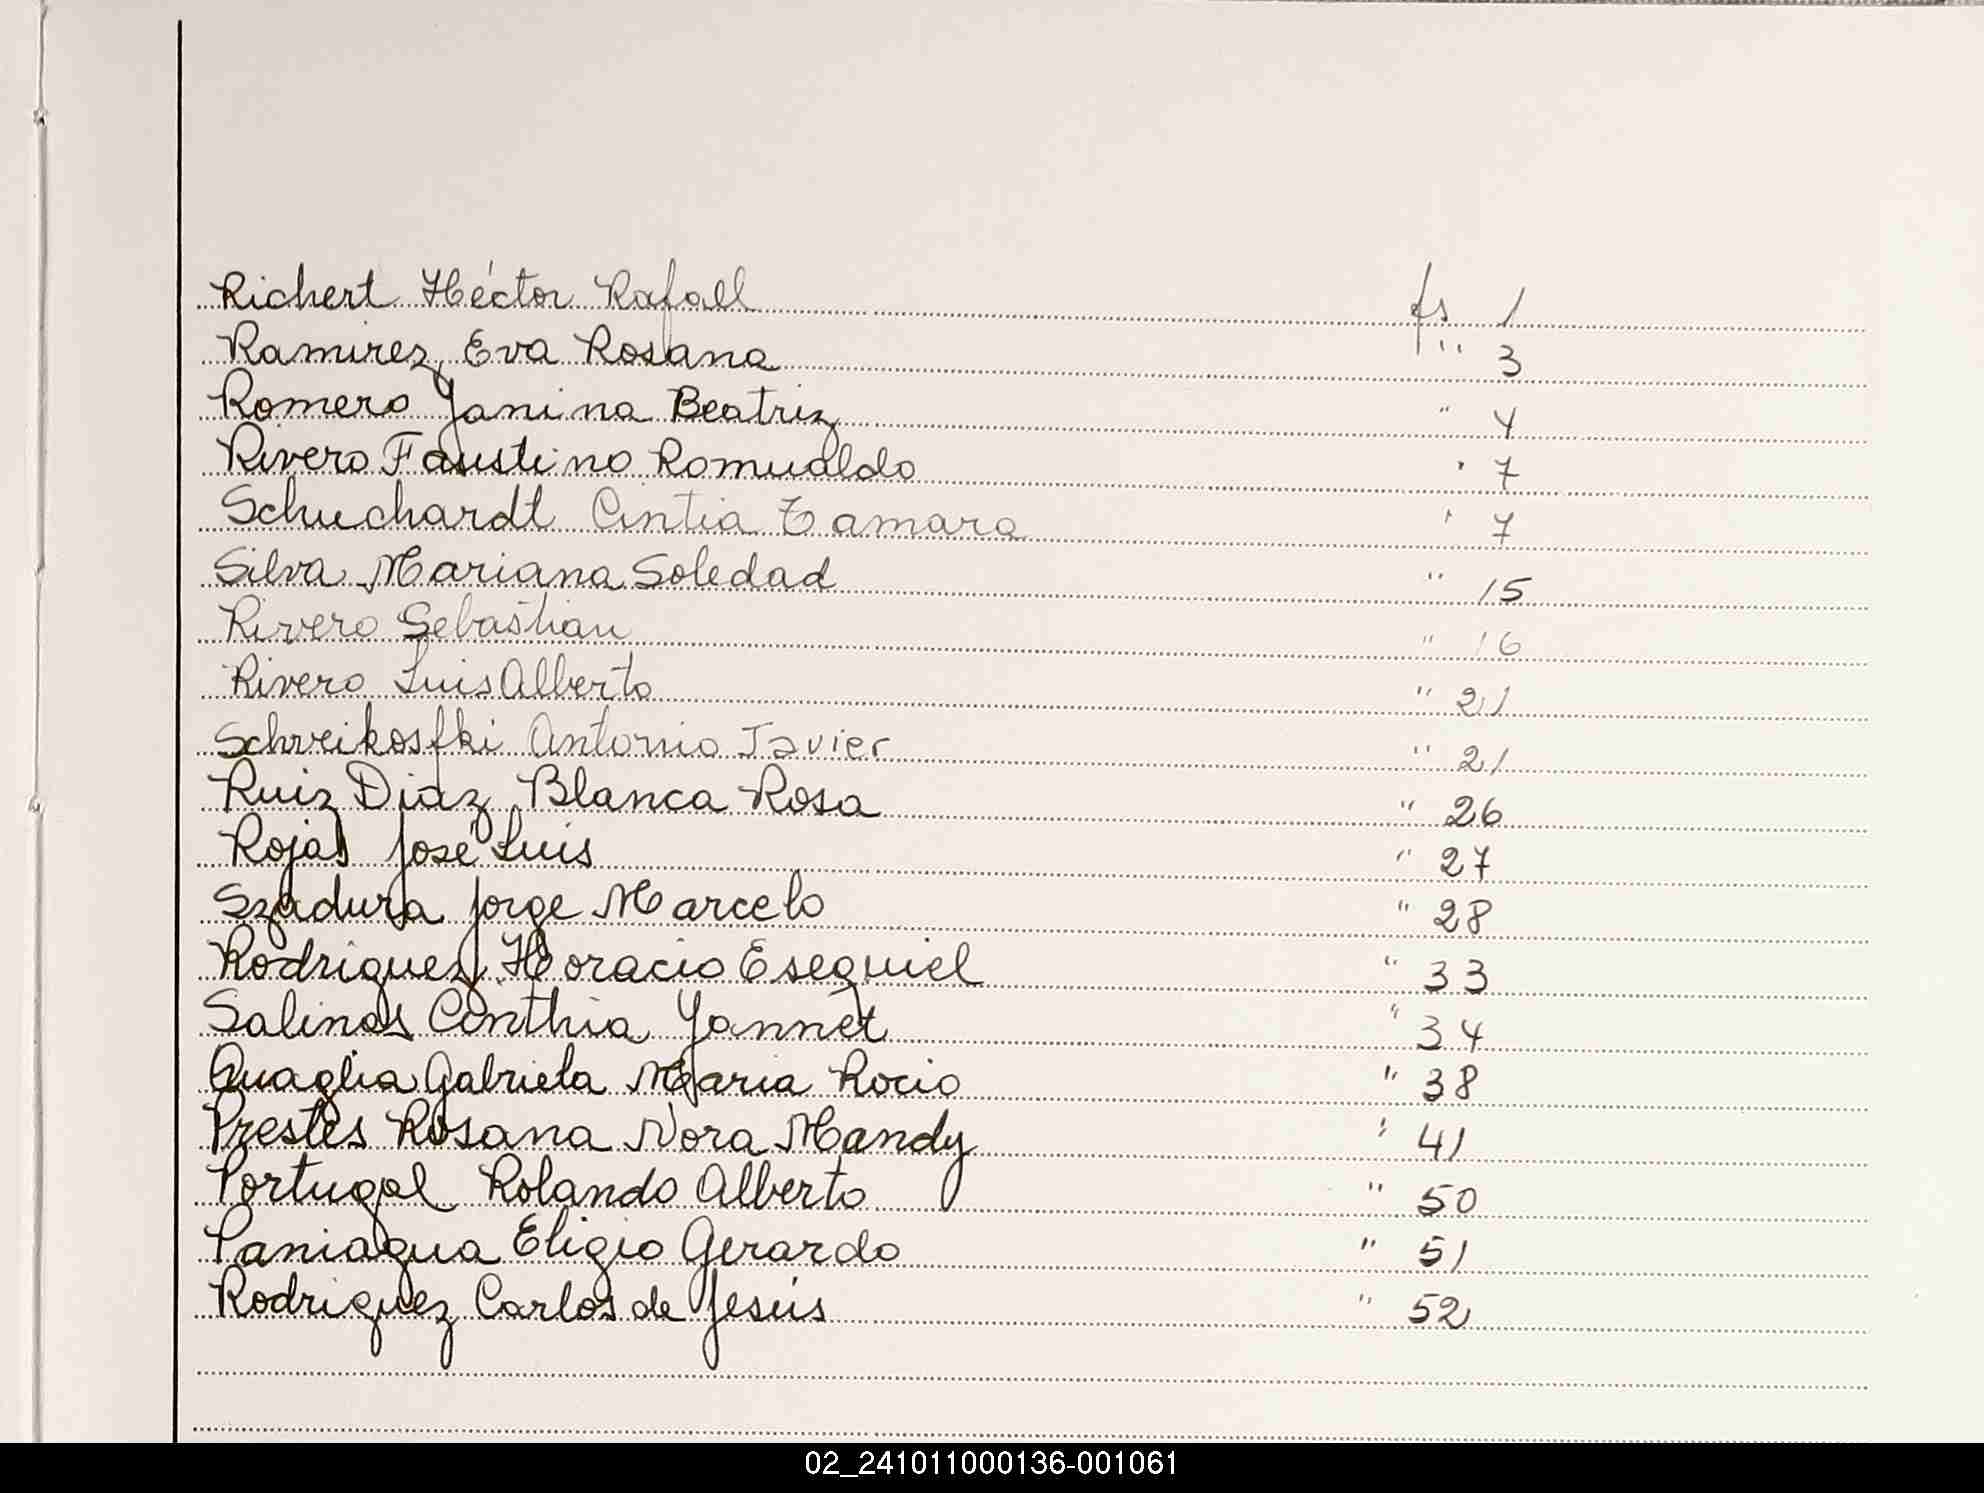 Richert Héctor Rafael fs 1
Ramirez Eva Rosana " 3
Romero Yanina Beatriz " 4
Rivero Faustino Romualdo " 7
Schuchardt Cintia Tamara " 7
Silva Mariana Soledad " 15
Rivero Sebastian " 16
Rivero Luis Alberto " 21
Antonio Javier " 21
Ruiz Diaz Blanca Rosa " 26
Rojas José Luis " 27
Szadura Jorge Marcelo " 28
Rodriguez Horacio Esequiel " 33
Salinas Cinthia Yannet " 34
Quaglia Gabriela Maria Rocio " 38
Prestes Rosana Nora Mandy " 41
Portugal Rolando Alberto " 50
Paniagua Eligio Gerardo " 51
Rodriguez Carlos de Jesús " 52
02_241011000136-001061